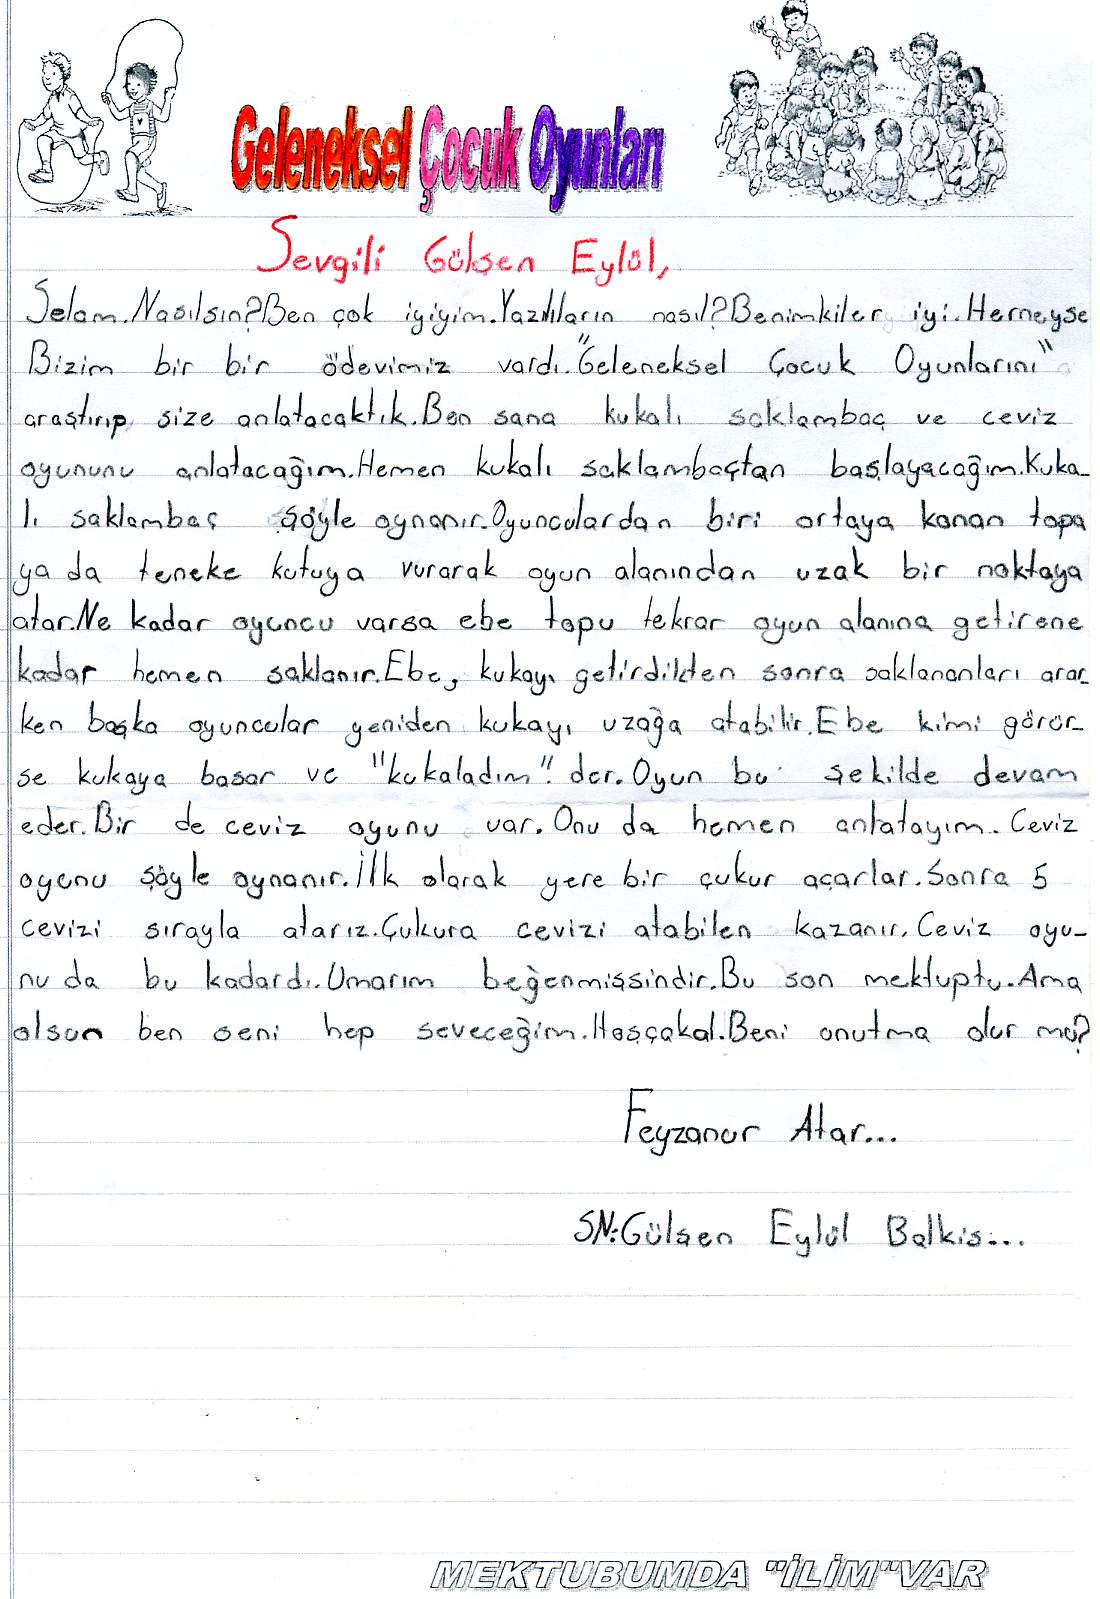 Geleneksel Çocuk Oyunları
Sevgili Gülşen Eylül,
Selam.Nasılsın?Ben çok iyiyim.Yazılıların nasıl?Benimkiler iyi.Herneyse
Bizim bir bir ödevimiz vardı."Geleneksel Çocuk Oyunlarını"
araştırıp size anlatacaktık.Ben sana kukalı saklambaç ve ceviz
oyununu anlatacağım.Hemen kukalı saklambaçtan başlayacağım.Kuka-
lı saklambaç şöyle oynanır.Oyunculardan biri ortaya konan topa
ya da teneke kutuya vurarak oyun alanından uzak bir noktaya
atar.Ne kadar oyuncu varsa ebe topu tekrar oyun alanına getirene
kadar hemen saklanır.Ebe, kukayı getirdikten sonra saklananları arar-
ken başka oyuncular yeniden kukayı uzağa atabilir.Ebe kimi görür-
se kukaya basar ve "kukaladım". der.Oyun bu şekilde devam
eder.Bir de ceviz oyunu var.Onu da hemen anlatayım.Ceviz
oyunu şöyle oynanır.İlk olarak yere bir çukur açarlar.Sonra 5
cevizi sırayla atarız.Çukura cevizi atabilen kazanır.Ceviz oyu-
nu da bu kadardı.Umarım beğenmişsindir.Bu son mektuptu.Ama
olsun ben seni hep seveceğim.Hoşçakal.Beni unutma olur mu?
Feyzanur Atar...
SN:Gülşen Eylül Balkis...
MEKTUBUMDA "İLİM"VAR